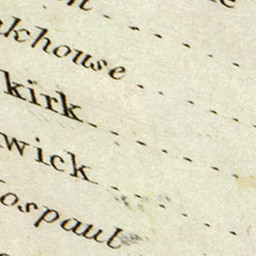 khouse
kirk
wick
ospaul